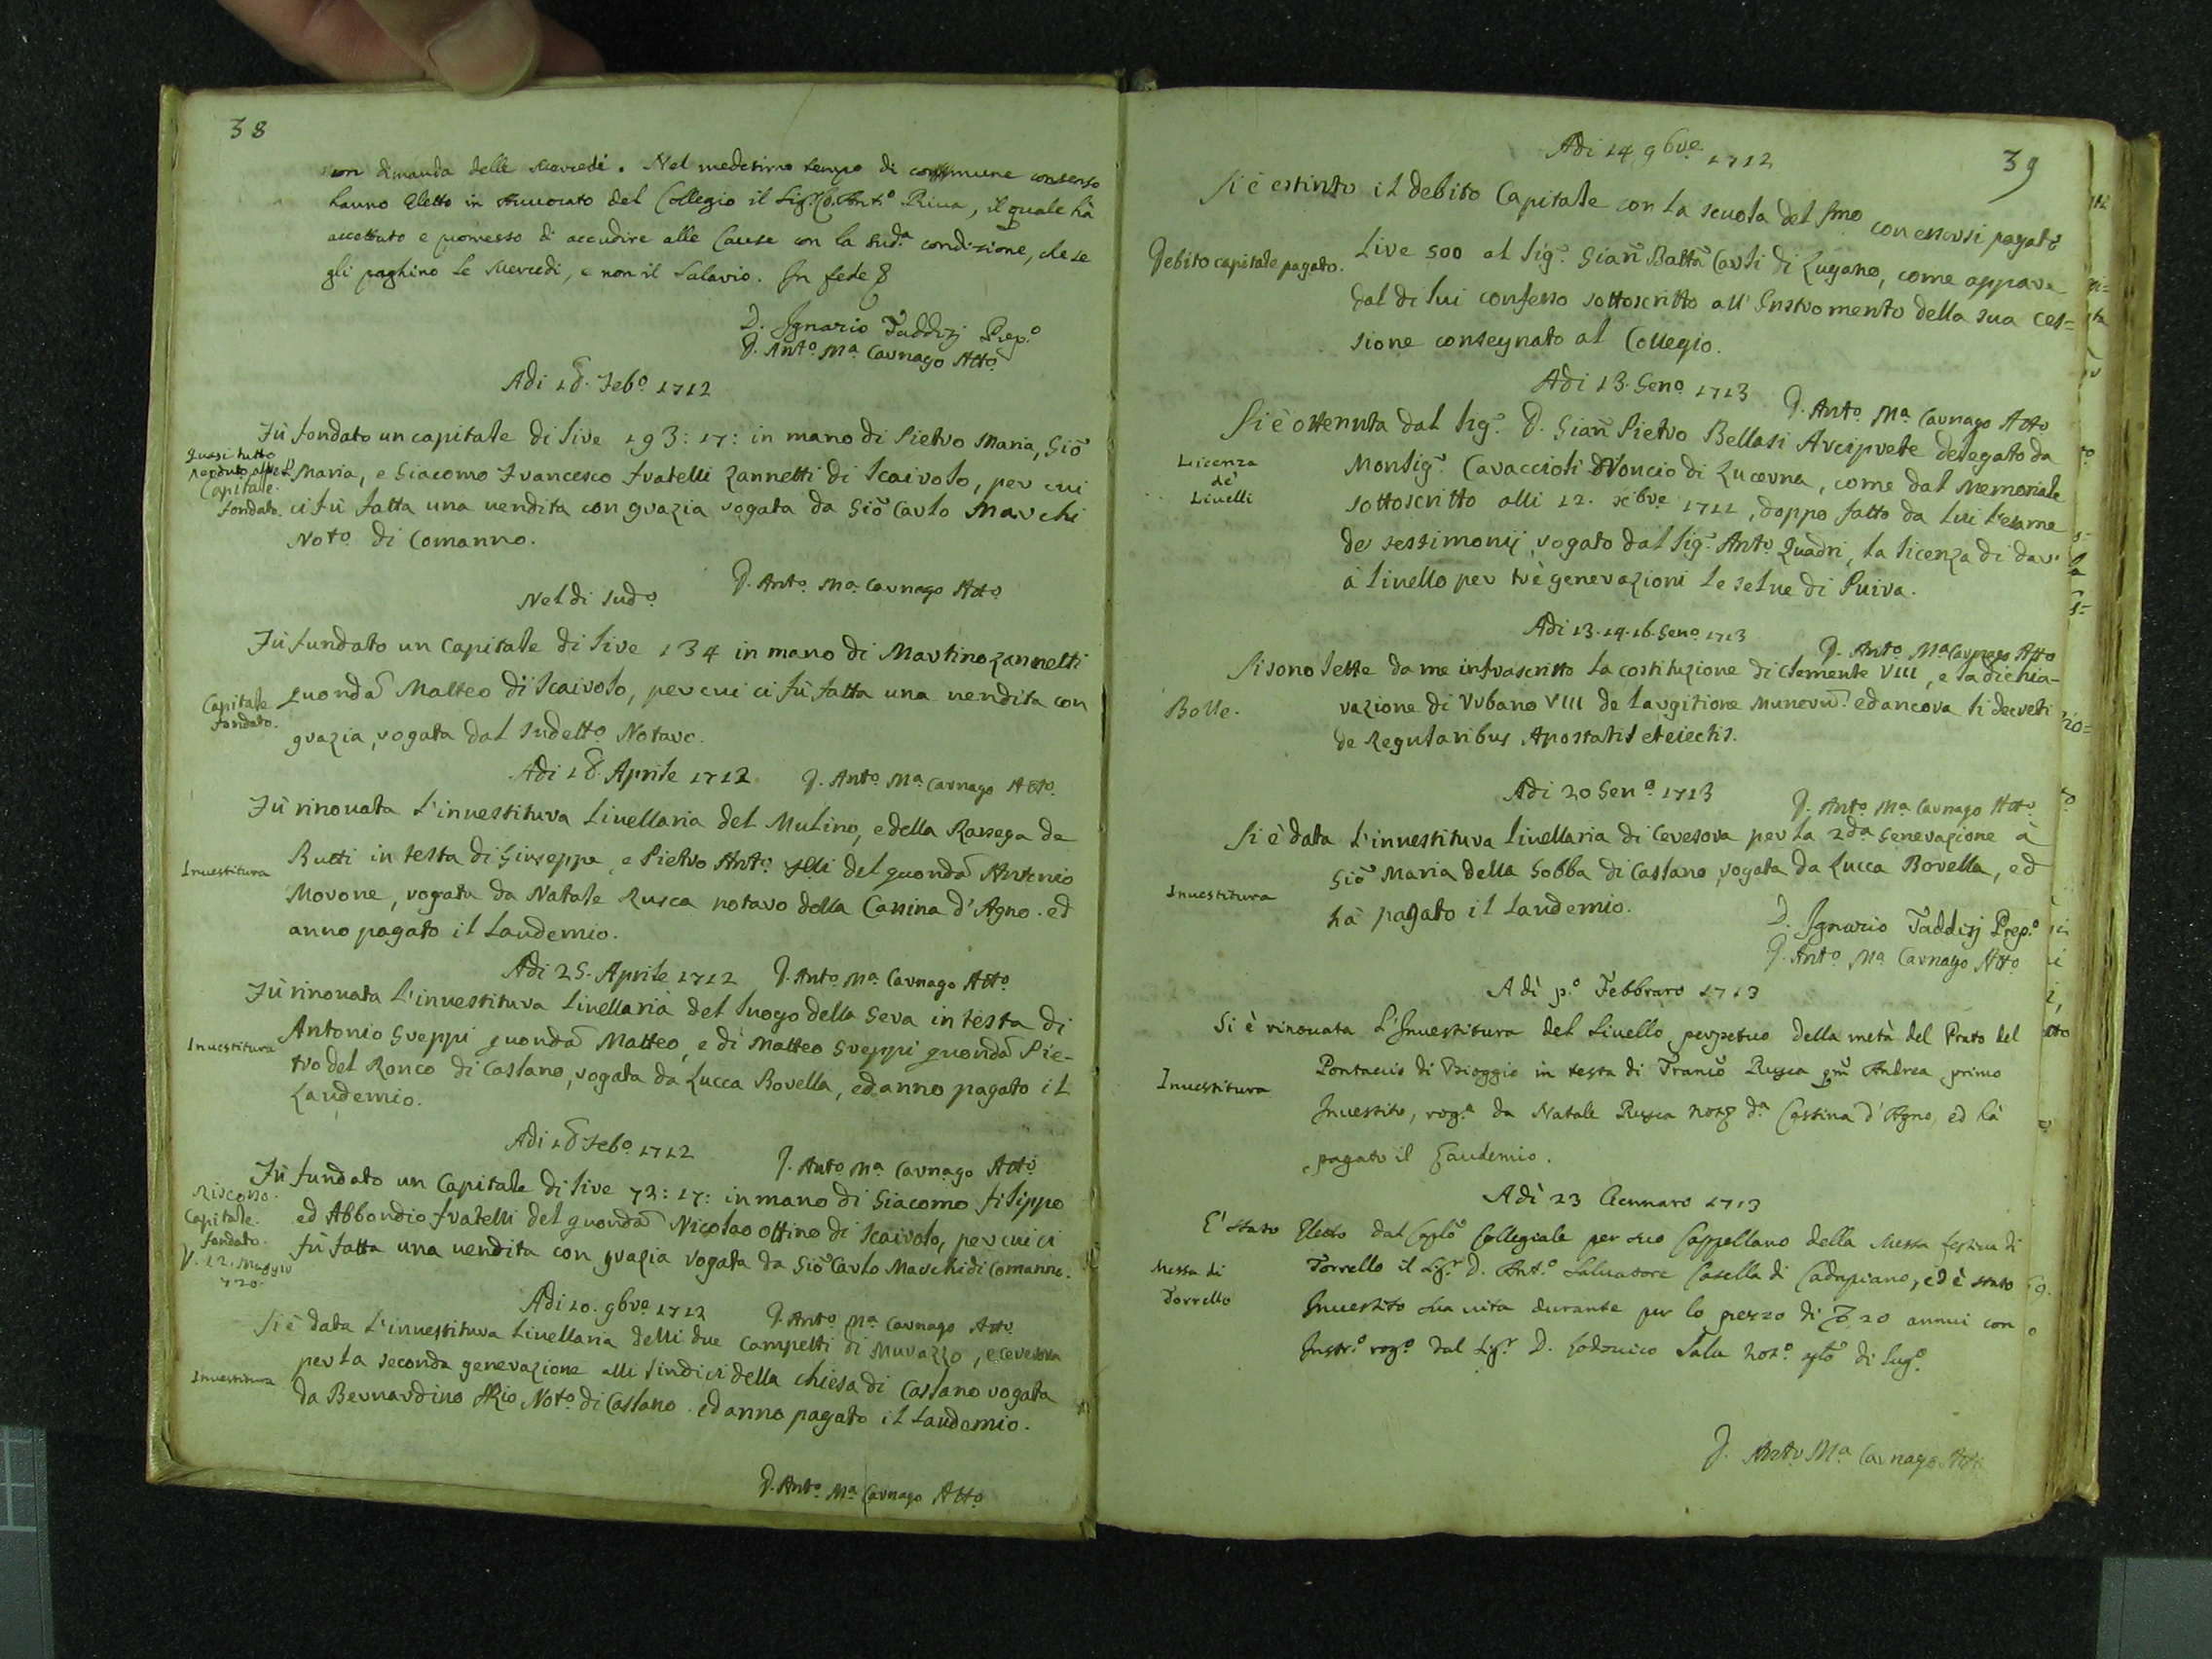 38
con dimanda delle Mercedi. Nel medesimo tempo di commune consenso
hanno Eletto in Auuocato del Collegio il Sig.r Co. Ant.o Riua, il quale hà
accettato e promesso di accudire alle Cause con la sud.a condizione, che se
gli paghino le Mercedi, e non il Salario. In fede
D. Ignazio Taddisj Prep.o
D. Ant.o M.a Carnago Att.o
Adi 18. Feb.o 1712
Fù fondato un capitale di lire 193: 17: in mano di Pietro Maria, Giō
Quasi tutto
Capitale
fondato.
Maria, e Giacomo Francesco fratelli Zannetti di Scairolo, per cui
ci fù fatta una uendita con grazia rogata da Giō Carlo Marchi
Not.o di Comanno.
D. Ant.o M.a Carnago Att.o
Nel di sud.o
Fù fundato un Capitale di lire 134 in mano di Martino Zannetti
Capitale
fondato.
quondā Matteo di Scairolo, per cui ci fù fatta una uendita con
grazia, rogata dal sudetto Notaro.
D. Ant.o M.a Carnago Att.o
Adi 18. Aprile 1712
Fù rinouata l'inuestitura liuellaria del Mulino, e della Rassega de
Inuestitura
Butti in testa di Giuseppe, e Pietro Ant.o del quondā Antonio
Morone, rogata da Natale Rusca notaro della Cassina d'Agno. ed
anno pagato il laudemio.
D. Ant.o M.a Carnago Att.o
Adi 25. Aprile 1712
Fù rinouata l'inuestitura liuellaria del luogo della Gera in testa di
Inuestitura
Antonio Greppi quondā Matteo, e di Matteo Greppi quondā Pie-
tro del Ronco di Caslano, rogata da Lucca Rovella, ed anno pagato il
Laudemio.
D. Ant.o M.a Carnago Att.o
Adi 18 Feb.o 1712
Fù fundato un Capitale di lire 73: 17: in mano di Giacomo filippo
Riscosso.
Capitale.
fondato.
V. 12. Maggio
720.
ed Abbondio fratelli del quondā Nicolao Ottino di Scairolo, per cui ci
fù fatta una uendita con grazia rogata da Giō Carlo Marchi di Comanno.
D. Ant.o M.a Carnago Att.o
Adi 10. 9bre 1712
Si è data l'inuestitura liuellaria delli due Campetti di Murazzo, e ceresora
Inuestitura
per la seconda generazione alli sindici della chiesa di Caslano rogata
da Bernardino Rio Not.o di Caslano. ed anno pagato il Laudemio.
D. Ant.o M.a Carnago Att.o
39
Adi 14 9bre 1712
Si è estinto il debito Capitale con la scuola del Smo con essersi pagato
Debito capitale pagato.
Lire 500 al Sig.r Gian Batta Carli di Lugano, come appare
dal di lui confesso sottoscritto all'Instromento della sua ces=
sione consegnato al Collegio.
D. Ant.o M.a Carnago Att.o
Adi 13. Gen.o 1713
Si è ottenuta dal Sig.r D. Gian Pietro Bellasi Arciprete delegato da
Licenza
de'
Liuelli
Monsig.r Caraccioli Noncio di Lucerna, come dal Memoriale
sottoscritto alli 12. xbre 1712, doppo fatto da lui l'esame
de testimonij rogato dal Sig.r Ant.o Quadri, la licenza di dar'
à liuello per tre generazioni le selue di Puira.
D. Ant.o M.a Carnago Att.o
Adi 13. 14. 16. Gen.o 1713
Si sono lette da me infrascritto la costituzione di Clemente VIII, e la dichia-
Bolle.
razione di Vrbano VIII de largitione Munerū. ed ancora li decreti
de Regularibus Apostatis et eiectis.
D. Ant.o M.a Carnago Att.o
Adi 20 Gen.o 1713
Si è data l'inuestitura liuellaria di Ceresora per la 2da Generazione à
Inuestitura
Giō Maria della Gobba di Caslano, rogata da Lucca Rovella, ed
hà pagato il laudemio.
D. Ignazio Taddisj Prep.o
D. Ant.o M.a Carnago Att.o
Adì p.o Febbraro 1713
Si è rinouata l'Inuestitura del Liuello perpetuo della metà del Prato del
Inuestitura
Pontaccio di Bioggio in testa di Franco Rusca qm Andrea primo
Inuestito, rog.a da Natale Rusca d.a Cassina d'Agno, ed hà
pagato il Laudemio.
Adì 23 Gennaro 1713
E' stato Eletto dal Caplo Collegiale per suo Cappellano della Messa festiua di
Messa di
Torrello
Torrello il Sig.r D. Ant.o Saluatore Casella di Cadepiano, ed è stato
Inuestito sua uita durante per lo prezzo di 20 annui con
Instr.o rog.o dal Sig.r D. Lodouico Sala Not.o di Lug.o
D. Ant.o M.a Carnago Att.o